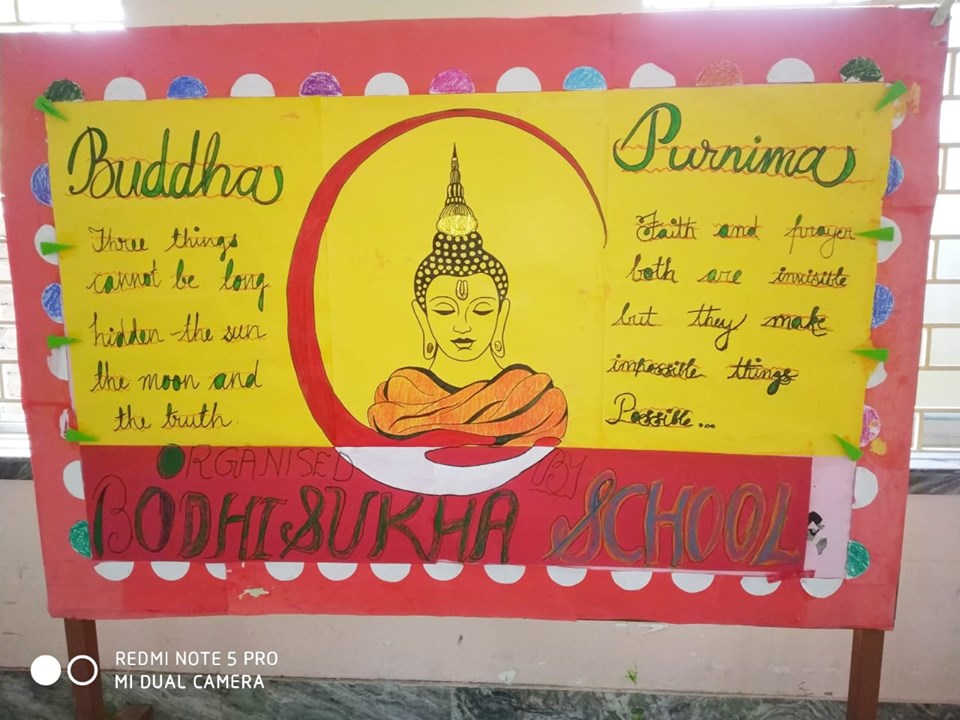 Buddha
Three things
cannot be long
hidden the sun
the moon and
the truth.
Purnima
Faith and prayer
both are invisible
but they make
impossible things
Possible...
ORGANISED BY
BODHISUKHA SCHOOL
REDMI NOTE 5 PRO
MI DUAL CAMERA